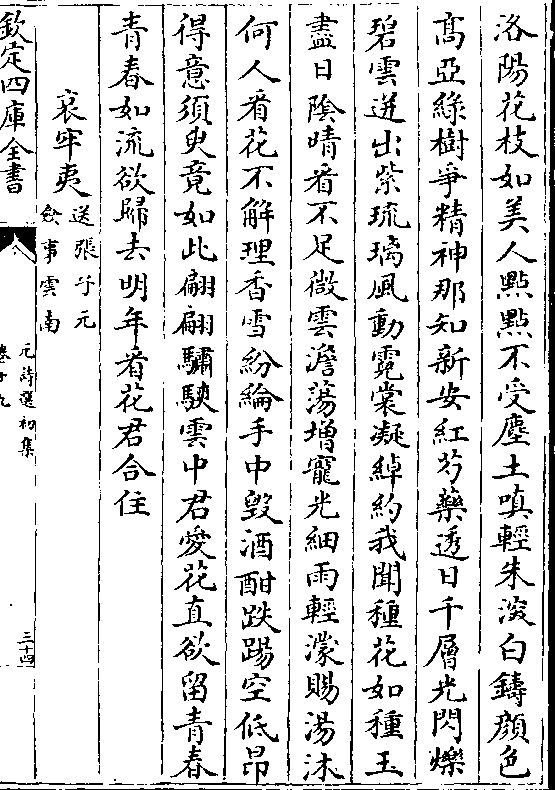 洛陽花枝如美人㸃㸃不受塵土嗔輕朱淡白鑄顔色
髙亞綠樹爭精神那知新安紅芍藥透日千層光閃爍
碧雲迸出紫琉璃風動霓裳凝綽約我聞種花如種玉
盡日隂晴看不足微雲澹蕩增寵光細雨輕濛賜湯沐
何人看花不解理香雪紛綸手中毁酒酣跌踢空低昂
得意須臾竟如此翩翩驌駛雲中君愛花直欲留青春
青春如流欲歸去明年看花君合住
哀牢夷送張子元
僉事雲南
欽定四庫全書
元詩選初集
卷十九
三十四